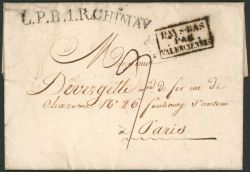 L.P.B.1.R.CHIMAY
PAYS-BAS
PAR
VALENCIENNES
Monsieur
Devergille md de fer rue de
Charonne N° 26 faubourg St antoine
à Paris